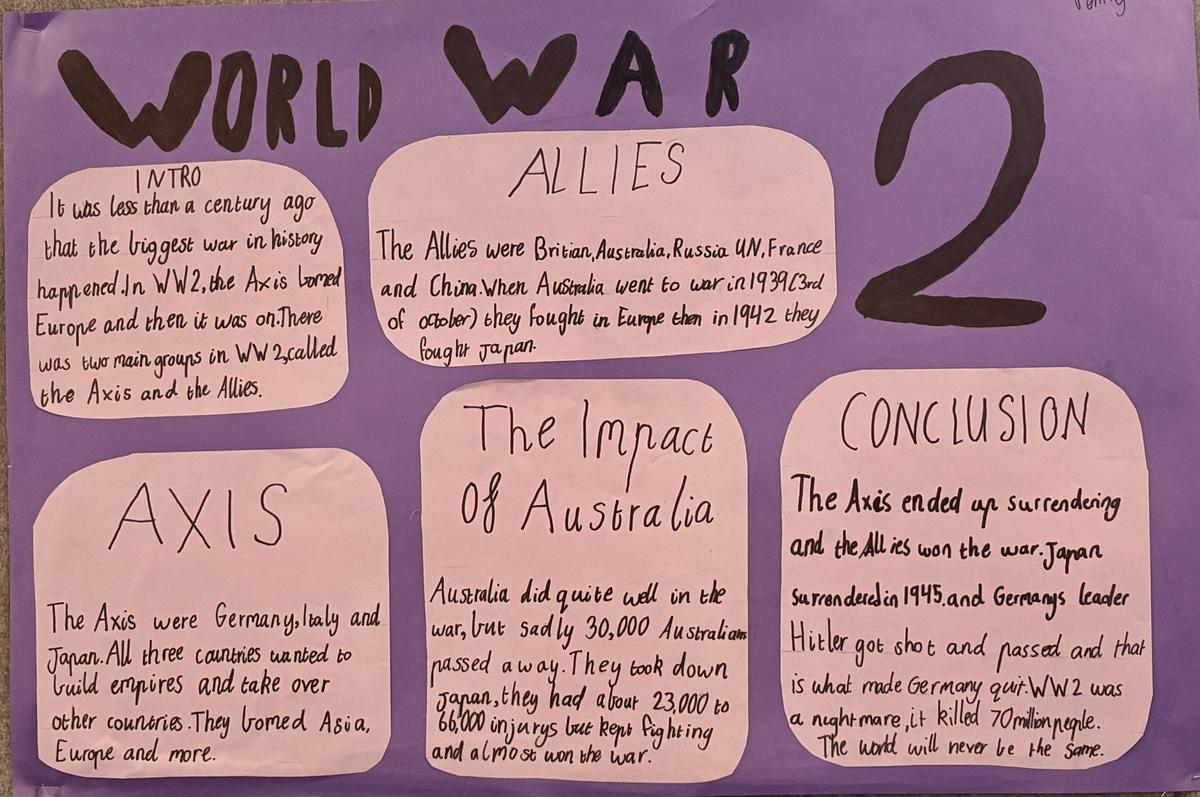 WORLD WAR 2
INTRO
It was less than a century ago
that the biggest war in history
happened.In WW2,the Axis bomed
Europe and then it was on.There
was two main groups in WW2,called
the Axis and the Allies.
ALLIES
The Allies were Britian,Australia,Russia UN,France
and China.When Australia went to war in 1939(3rd
of october) they fought in Europe then in 1942 they
fought Japan.
AXIS
The Axis were Germany,Italy and
Japan.All three countries wanted to
build empires and take over
other countries.They bomed Asia,
Europe and more.
The Impact
Of Australia
Australia did quite well in the
war,but sadly 30,000 Australians
passed away.They took down
Japan,they had about 23,000 to
66,000 injurys but kept fighting
and almost won the war.
CONCLUSION
The Axis ended up surrendering
and the Allies won the war.Japan
surrendered in 1945.and Germanys leader
Hitler got shot and passed and that
is what made Germany quit.WW2 was
a nightmare,it killed 70million people.
The world will never be the same.